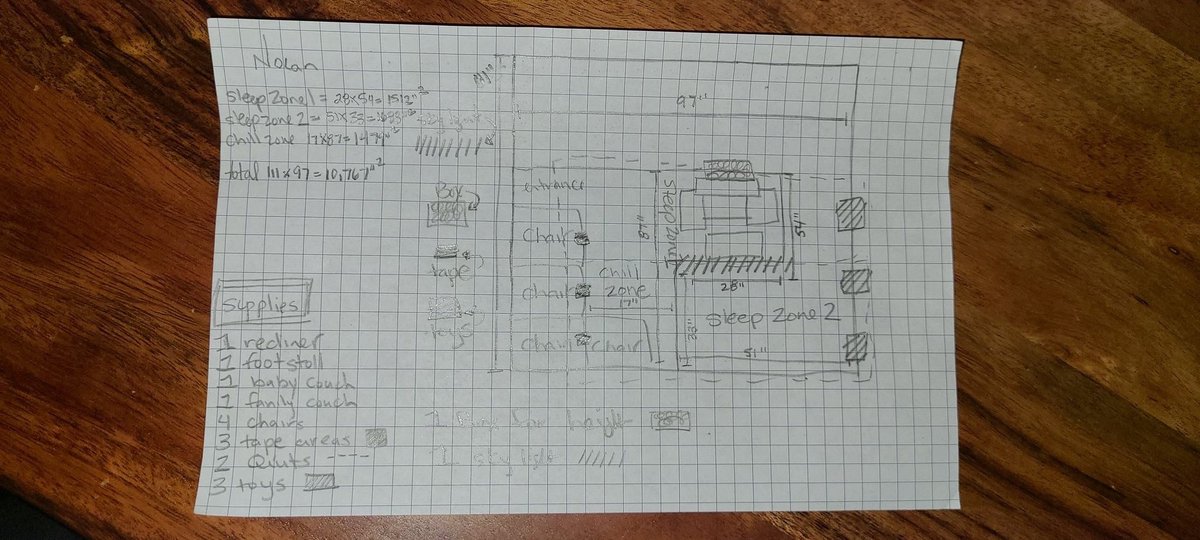 Nolan
Sleep Zone 1 = 28x54=1512"²
sleep zone 2 = 51x33=1683"²
chill zone 17x87=1479"²
total 111x97=10,767"²
Box
tape
toys
Supplies
1 recliner
1 footstoll
1 baby couch
1 family couch
4 chairs
3 tape areas
2 Quilts ----
3 toys
111"
97"
entrance
Chair
Chair
Chair
chair
87"
Sleep Zone 1
54"
28"
chill
zone
17"
Sleep Zone 2
33"
51"
1 Box for height
1 sky light